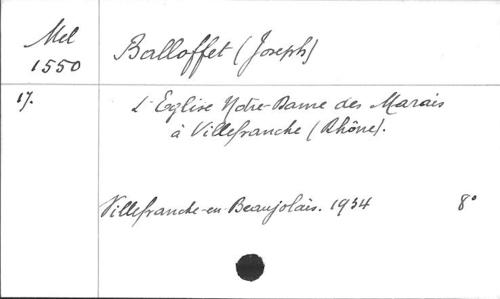 Mel
1550
Balloffet (Joseph)
17.
L'Eglise Notre-Dame des Marais
à Villefranche (Rhône).
Villefranche-en-Beaujolais. 1934
8°